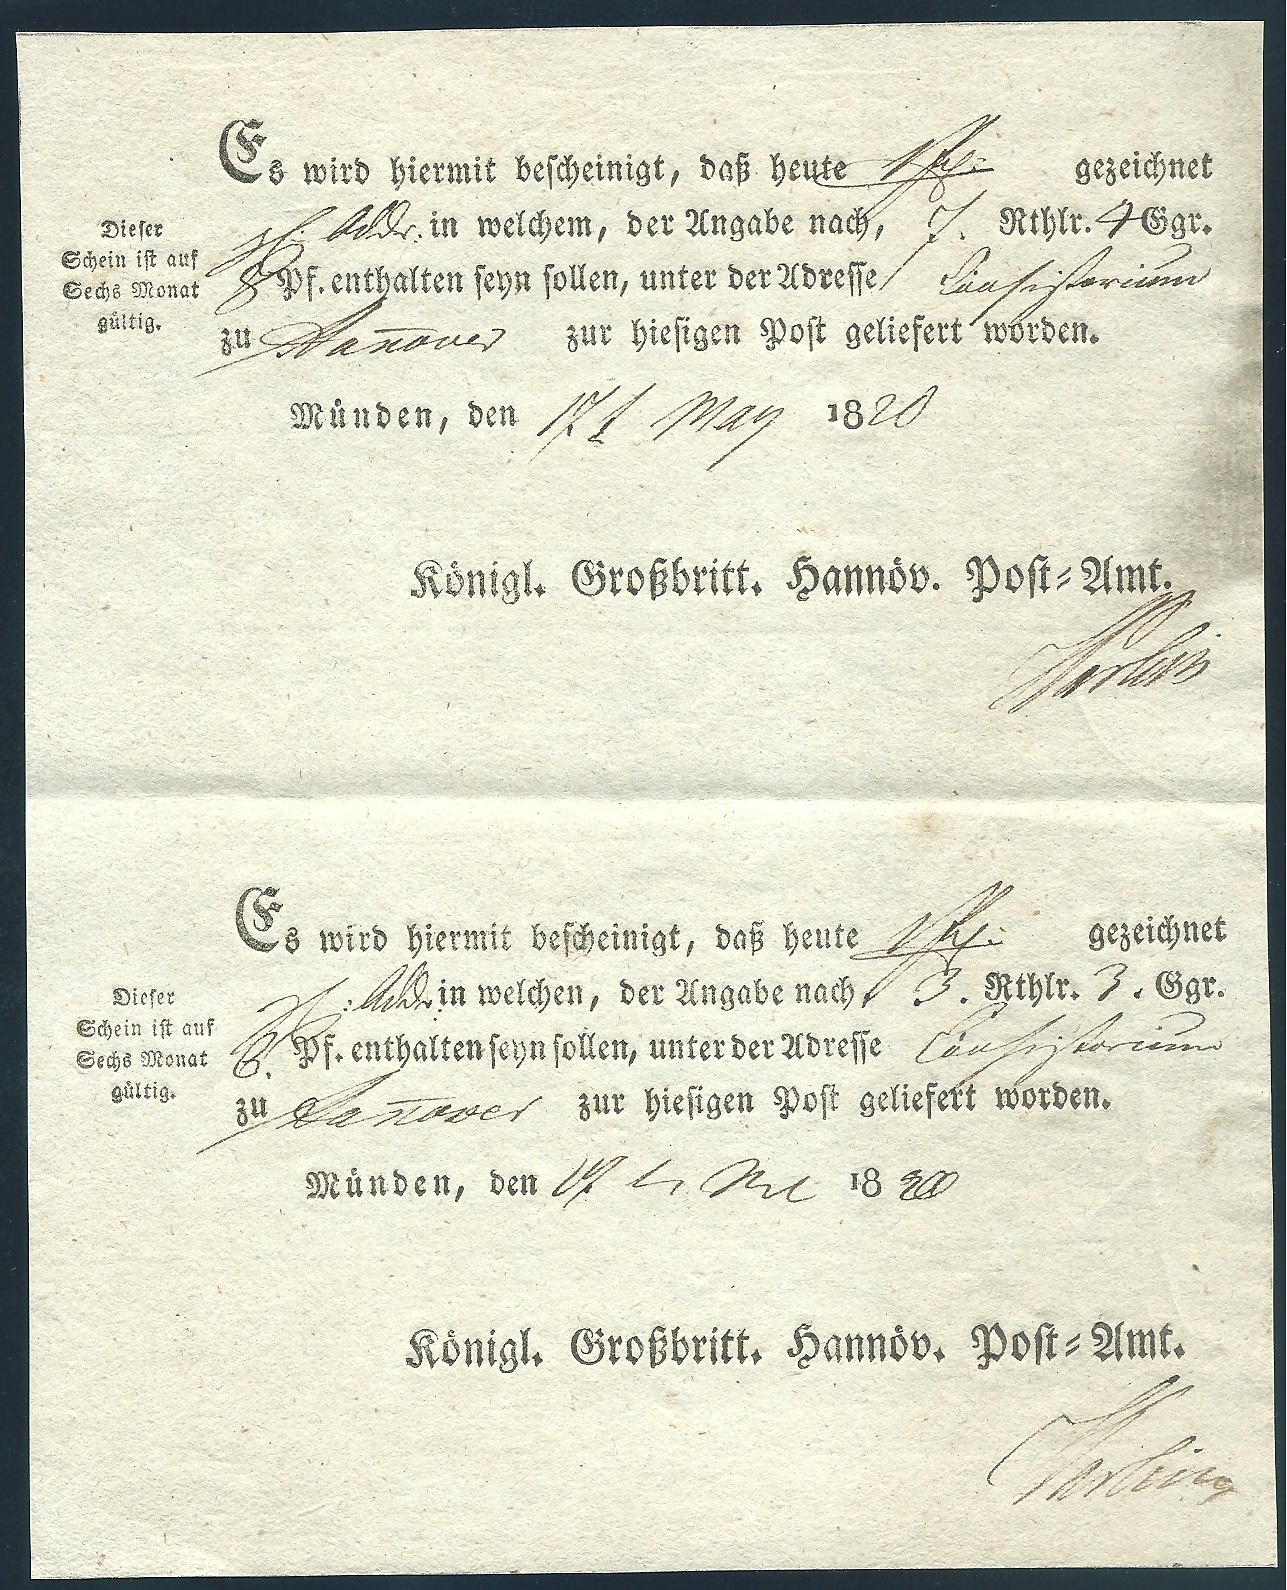 Es wird hiermit bescheinigt, daß heute 1 gezeichnet
Addr. in welchem, der Angabe nach, 7. Rthlr. 4 Ggr.
Dieser
Schein ist auf
Sechs Monat
gültig.
8 Pf. enthalten seyn sollen, unter der Adresse Consistorium
zu Hanover zur hiesigen Post geliefert worden.
Münden, den 17t May 1820
Königl. Großbritt. Hannöv. Post-Amt.
Es wird hiermit bescheinigt, daß heute 1 gezeichnet
Addr. in welchen, der Angabe nach, 3. Rthlr. 3. Ggr.
Dieser
Schein ist auf
Sechs Monat
gültig.
6. Pf. enthalten seyn sollen, unter der Adresse Consistorium
zu Hanover zur hiesigen Post geliefert worden.
Münden, den 17 1820
Königl. Großbritt. Hannöv. Post-Amt.